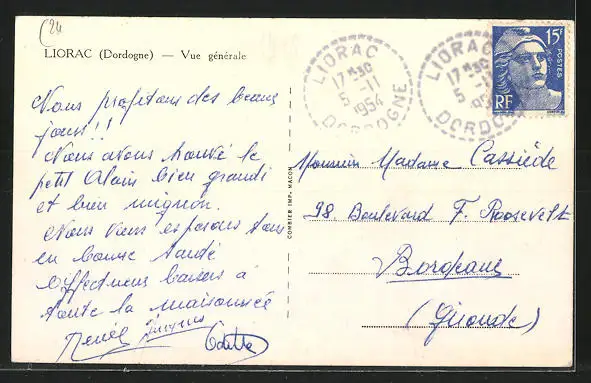 (24
LIORAC (Dordogne) — Vue générale
Nous profitons des beaux
jours!!
Nous avons trouvé le
petit Alain bien grandi
et bien mignon.
Nous vous espérons tous
en bonne santé
Affectueux baisers à
toute la maisonnée
Renée Jacques
Odette
COMBIER IMP. MACON
LIORAC
17 H 30
5 -11
1954
DORDOGNE
LIORAC
17 H 30
5 -11
DORDO
15F
POSTES
RF
Monsieur Madame Cassiède
98. Boulevard F. Roosevelt
Bordeaux
(Gironde)